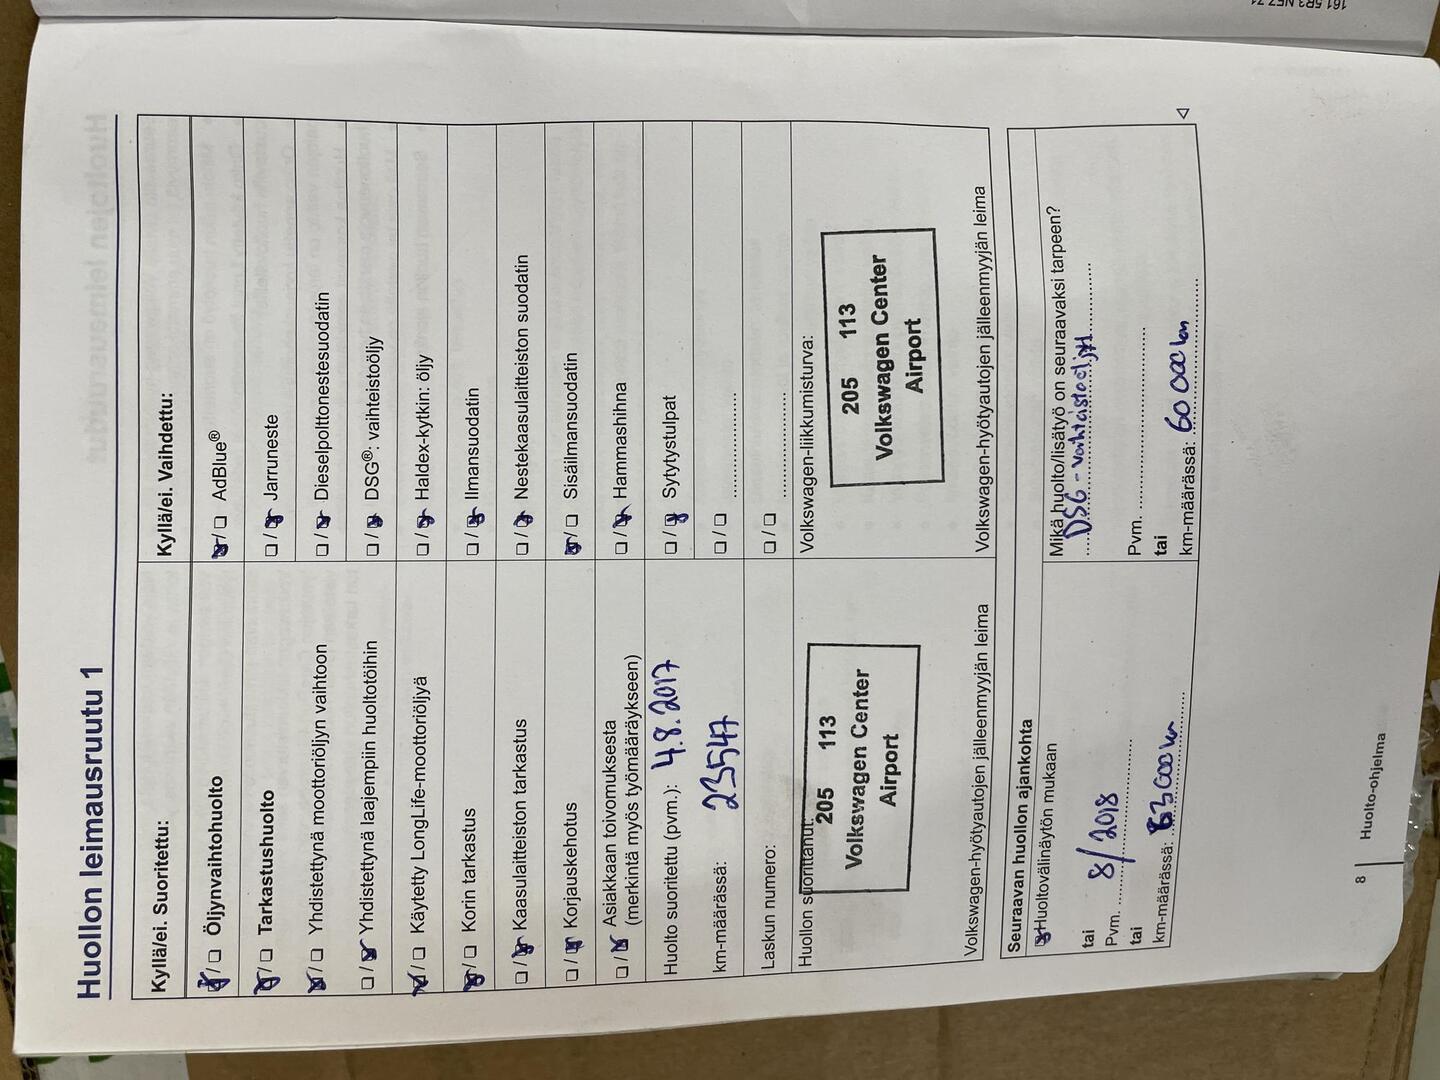 161.5R3.NF7.71
Huollon leimausruutu 1
Kyllä/ei. Suoritettu:
Kyllä/ei. Vaihdettu:
☒/☐ Öljynvaihtohuolto
☒/☐ AdBlue®
☒/☐ Tarkastushuolto
☐/☒ Jarruneste
☒/☐ Yhdistettynä moottoriöljyn vaihtoon
☐/☒ Dieselpolttonestesuodatin
☐/☒ Yhdistettynä laajempiin huoltotöihin
☐/☒ DSG®: vaihteistoöljy
☒/☐ Käytetty LongLife-moottoriöljyä
☐/☒ Haldex-kytkin: öljy
☒/☐ Korin tarkastus
☐/☒ Ilmansuodatin
☐/☒ Kaasulaitteiston tarkastus
☐/☒ Nestekaasulaitteiston suodatin
☐/☒ Korjauskehotus
☒/☐ Sisäilmansuodatin
☐/☒ Asiakkaan toivomuksesta
(merkintä myös työmääräykseen)
☐/☒ Hammashihna
Huolto suoritettu (pvm.): 4.8.2017
☐/☒ Sytytystulpat
km-määrässä: 23547
☐/☐ ....................
Laskun numero:
☐/☐ ....................
Huollon suorittanut:
205 113
Volkswagen Center
Airport
Volkswagen-hyötyautojen jälleenmyyjän leima
Volkswagen-liikkumisturva:
205 113
Volkswagen Center
Airport
Volkswagen-hyötyautojen jälleenmyyjän leima
Seuraavan huollon ajankohta
☒Huoltovälinäytön mukaan
tai
Pvm. 8/2018
tai
km-määrässä: 53000km
Mikä huolto/lisätyö on seuraavaksi tarpeen?
DSG-vaihteistoöljyt
Pvm. ....................
tai
km-määrässä: 60 000 km
8
Huolto-ohjelma